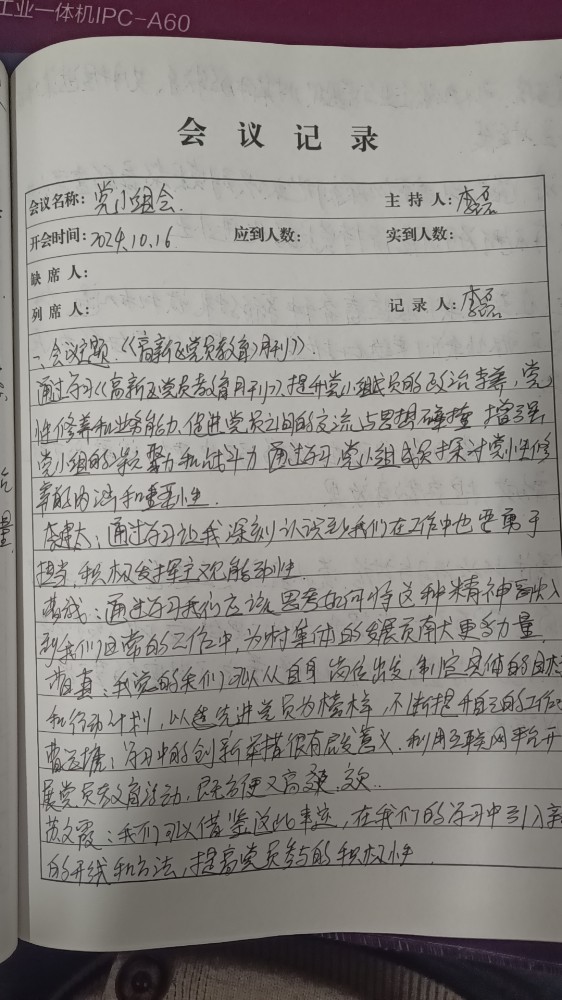 工业一体机IPC-A60
会议记录
会议名称：党小组会 主持人：李磊
开会时间：2024.10.16 应到人数： 实到人数：
缺席人：
列席人： 记录人：李磊
一、会议主题《高新区党员教育月刊》.
通过学习《高新区党员教育月刊》，提升党小组成员的政治素养，党
性修养和业务能力、促进党员之间的交流与思想碰撞 增强
党小组的凝聚力和战斗力 通过学习，党小组成员探讨党性修
养的内涵和重要性.
李建太：通过学习让我深刻认识到我们在工作中也要勇于
担当 积极发挥主观能动性.
：通过学习我们应该思考如何将这种精神融入
到我们日常的工作中，为村集体的发展贡献更多力量.
真：我觉的我们可以从自身岗位出发，制定具体的目标
和行动计划，以优先进党员为榜样，不断提升自己的工作
曹：学习中的创新举措很有启发意义.利用互联网平台开
展党员教育活动，既方便又高效.
苏文霞：我们可以借鉴这些事迹，在我们的学习中引入新
的形式和方法，提高党员参与的积极性.